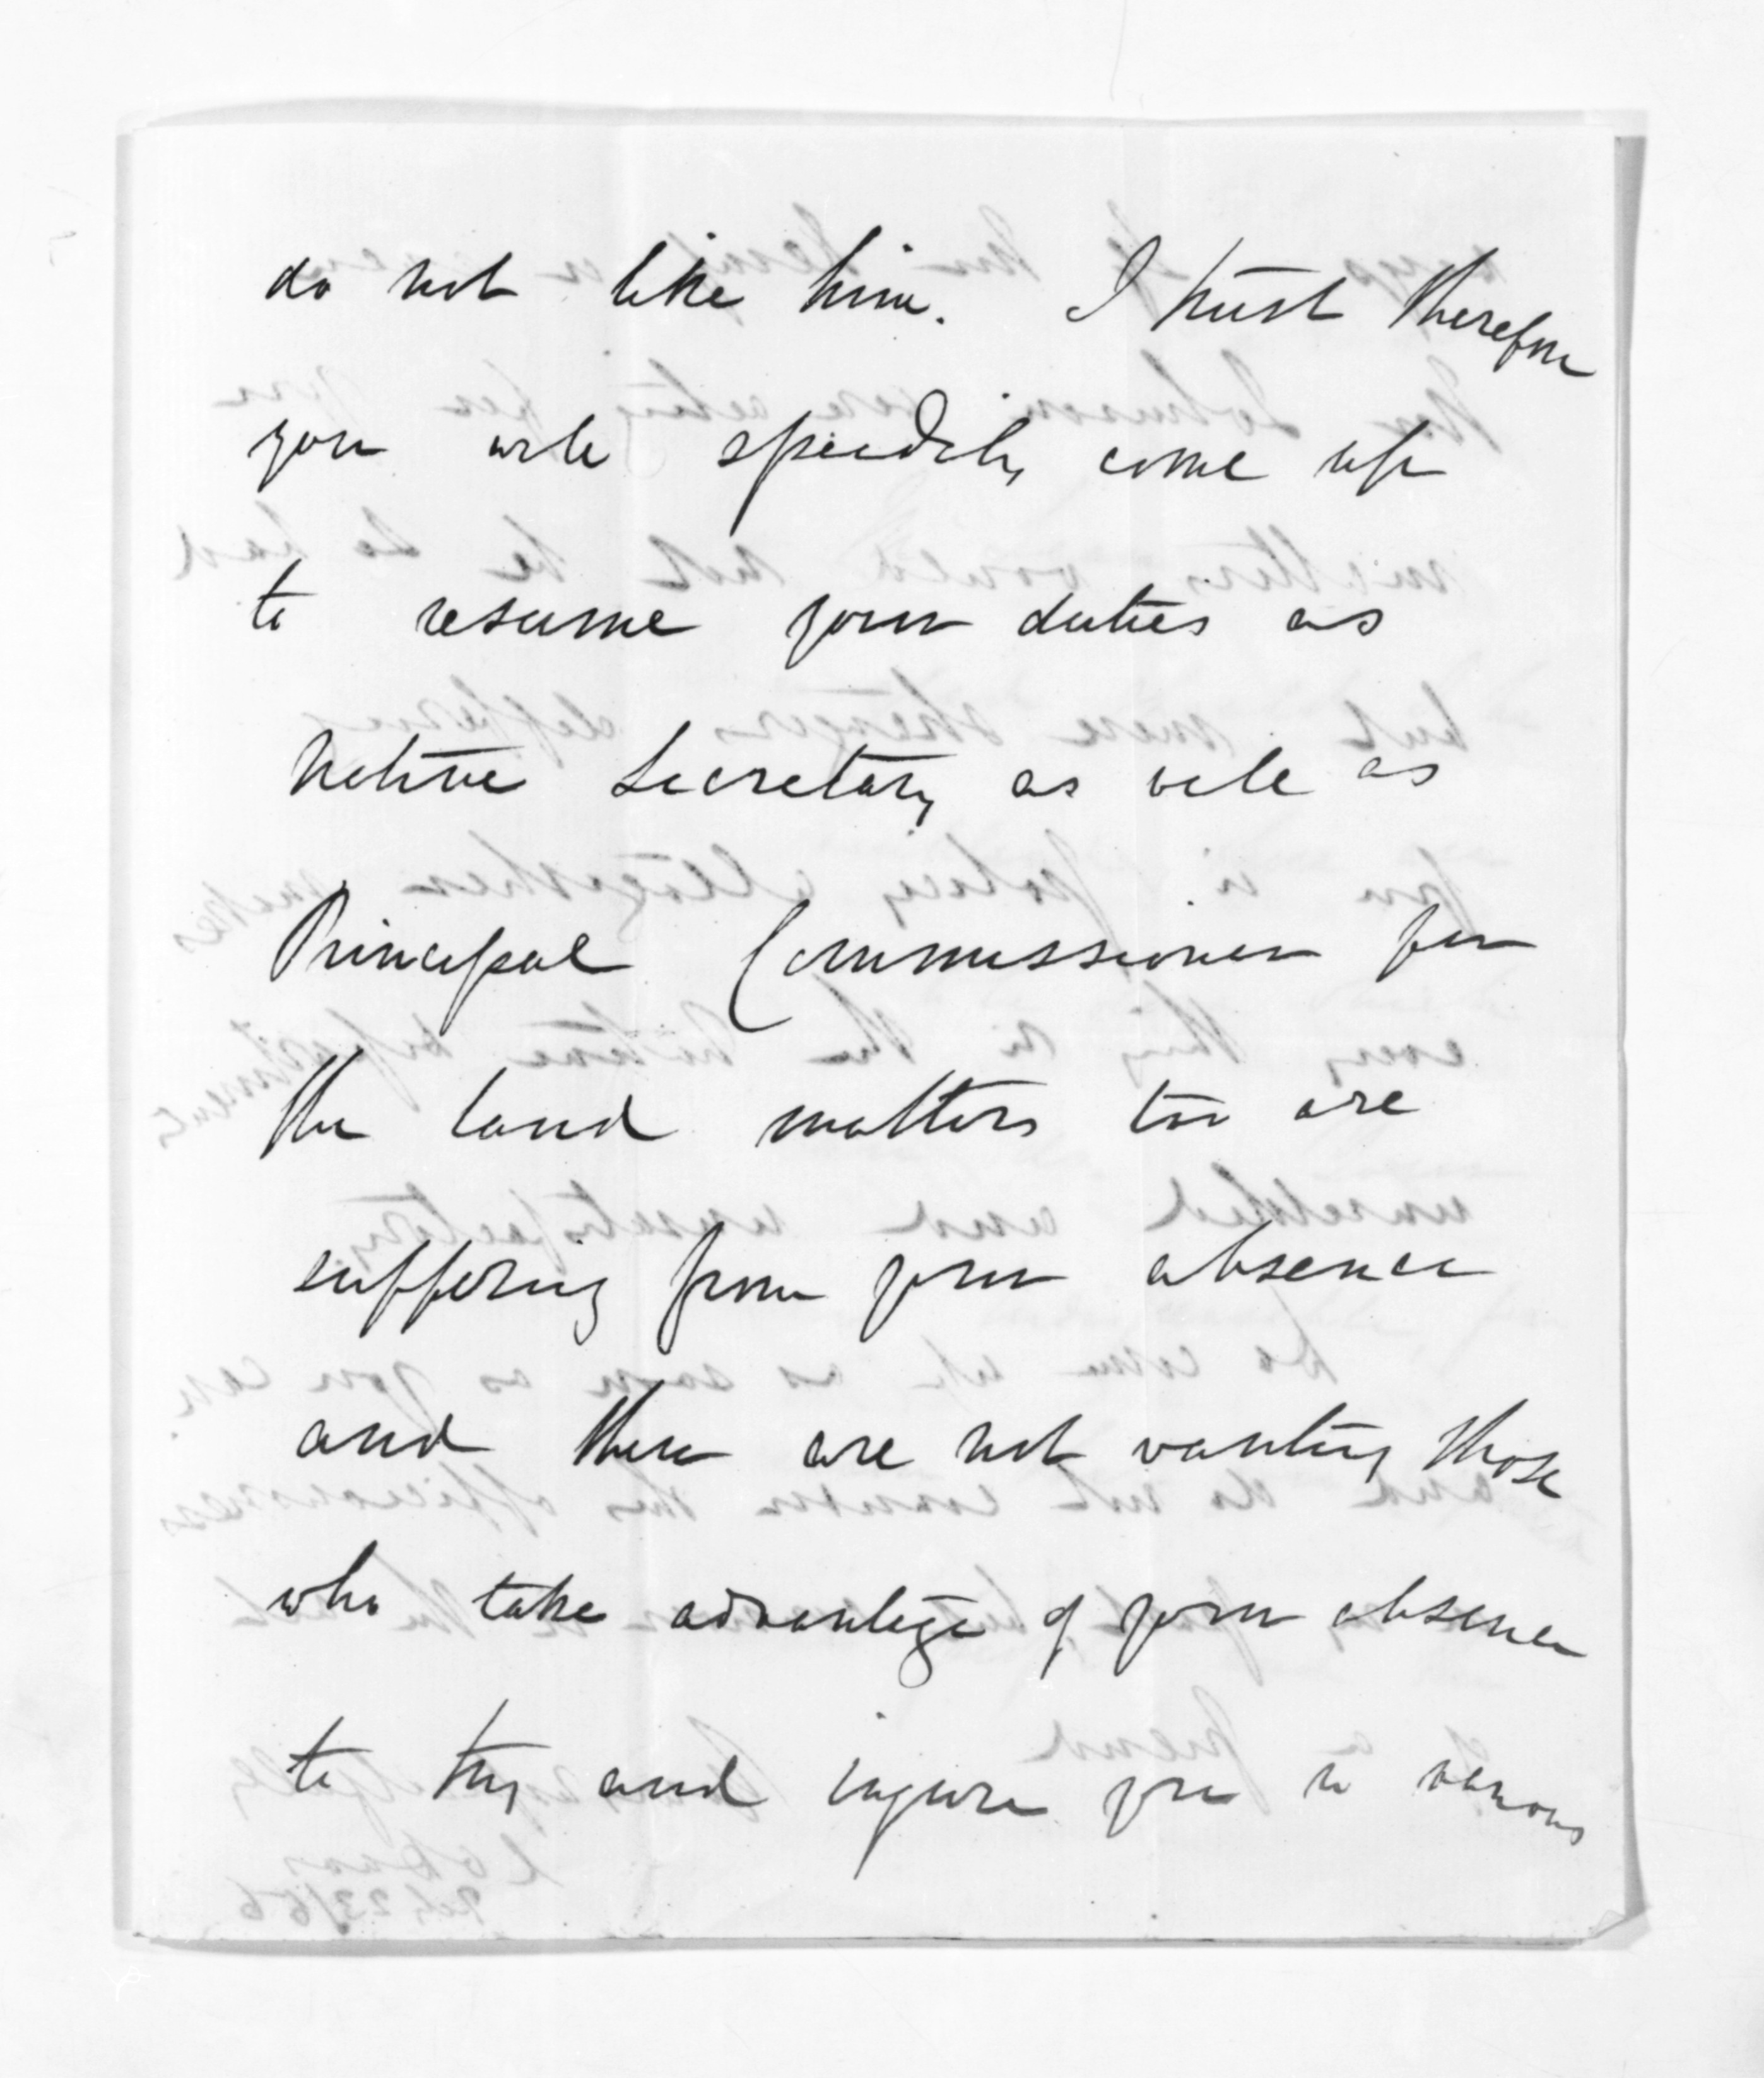 do not like him. I trust therefore
you will speedily come up
to resume your duties as
Native Secretary as well as
Principal Commissioner for
the land matters too are
suffering from your absence
and there are not wanting those
who take advantage of your absence
to try and injure you in various